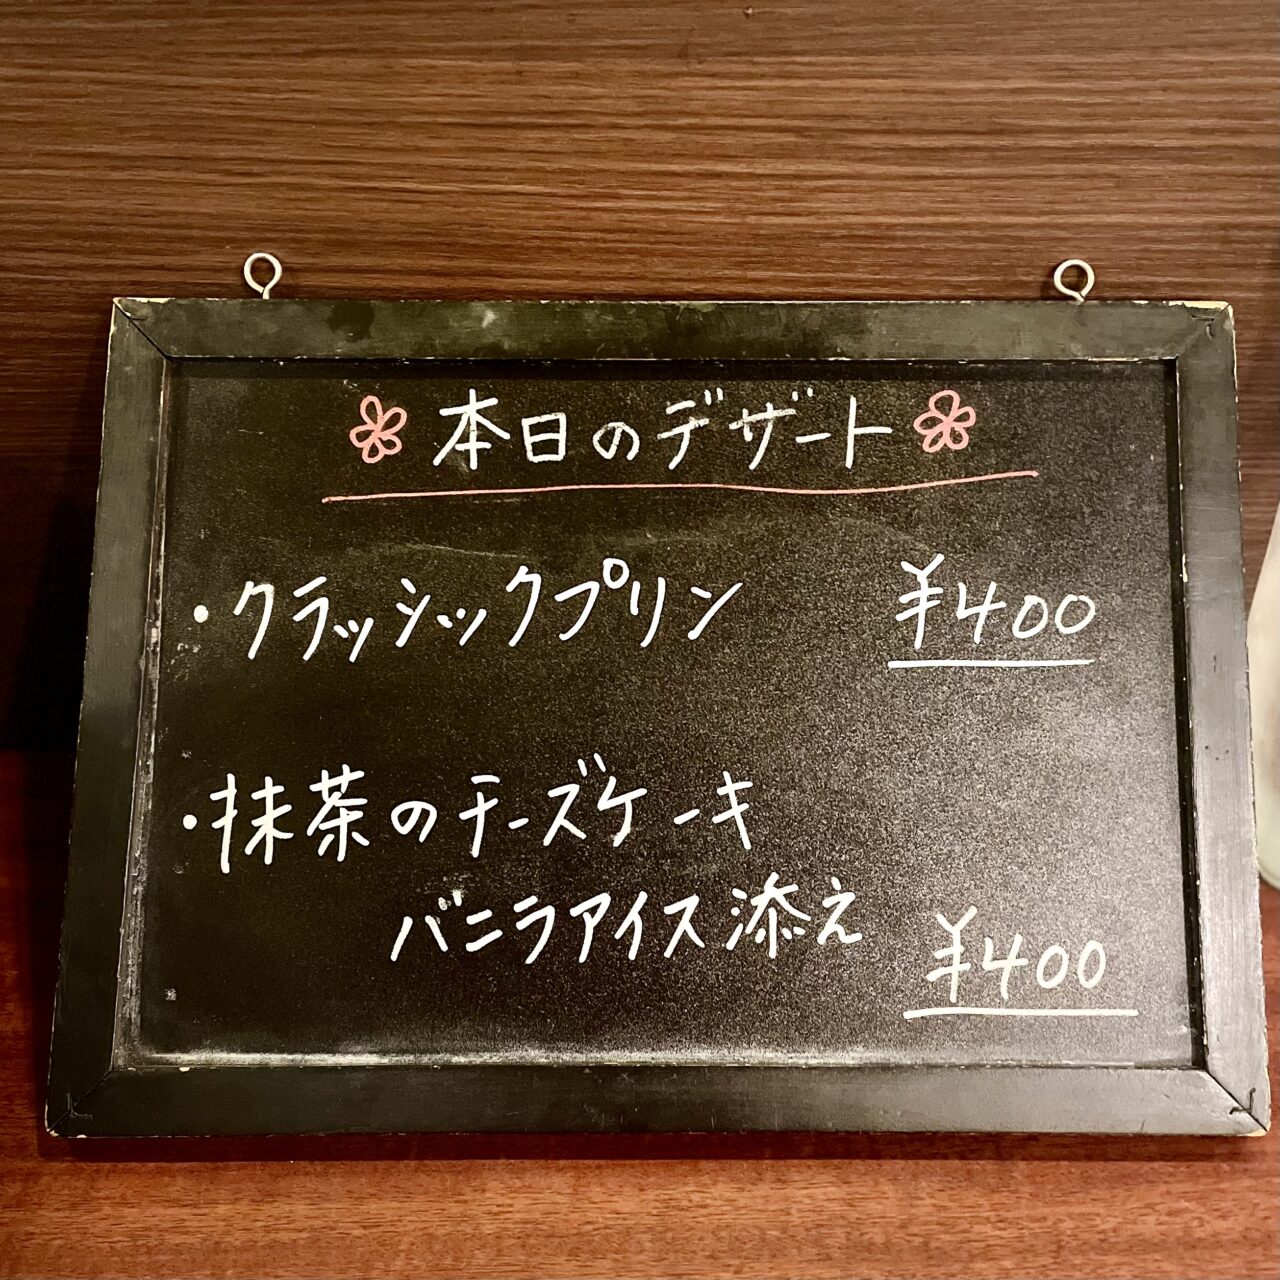 本日のデザート
・クラッシックプリン ¥400
・抹茶のチーズケーキ
バニラアイス添え ¥400